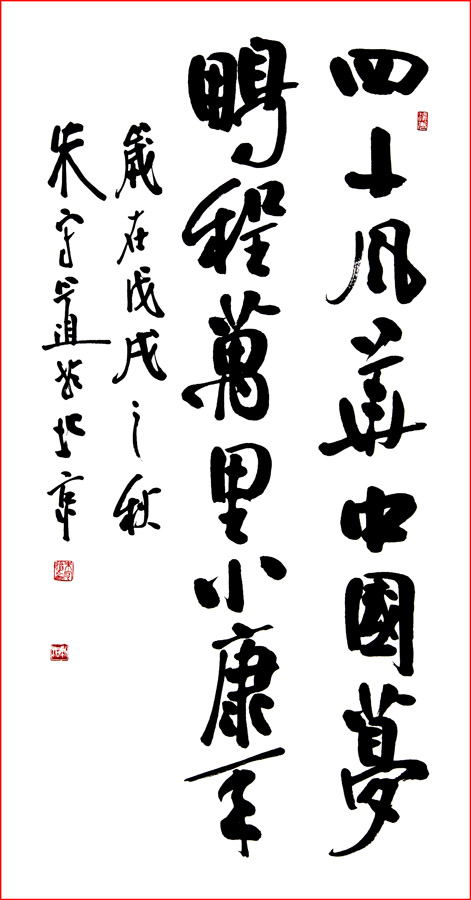 四十風華中國夢
鵬程萬里小康年
歲在戊戌之秋
朱守道於北京